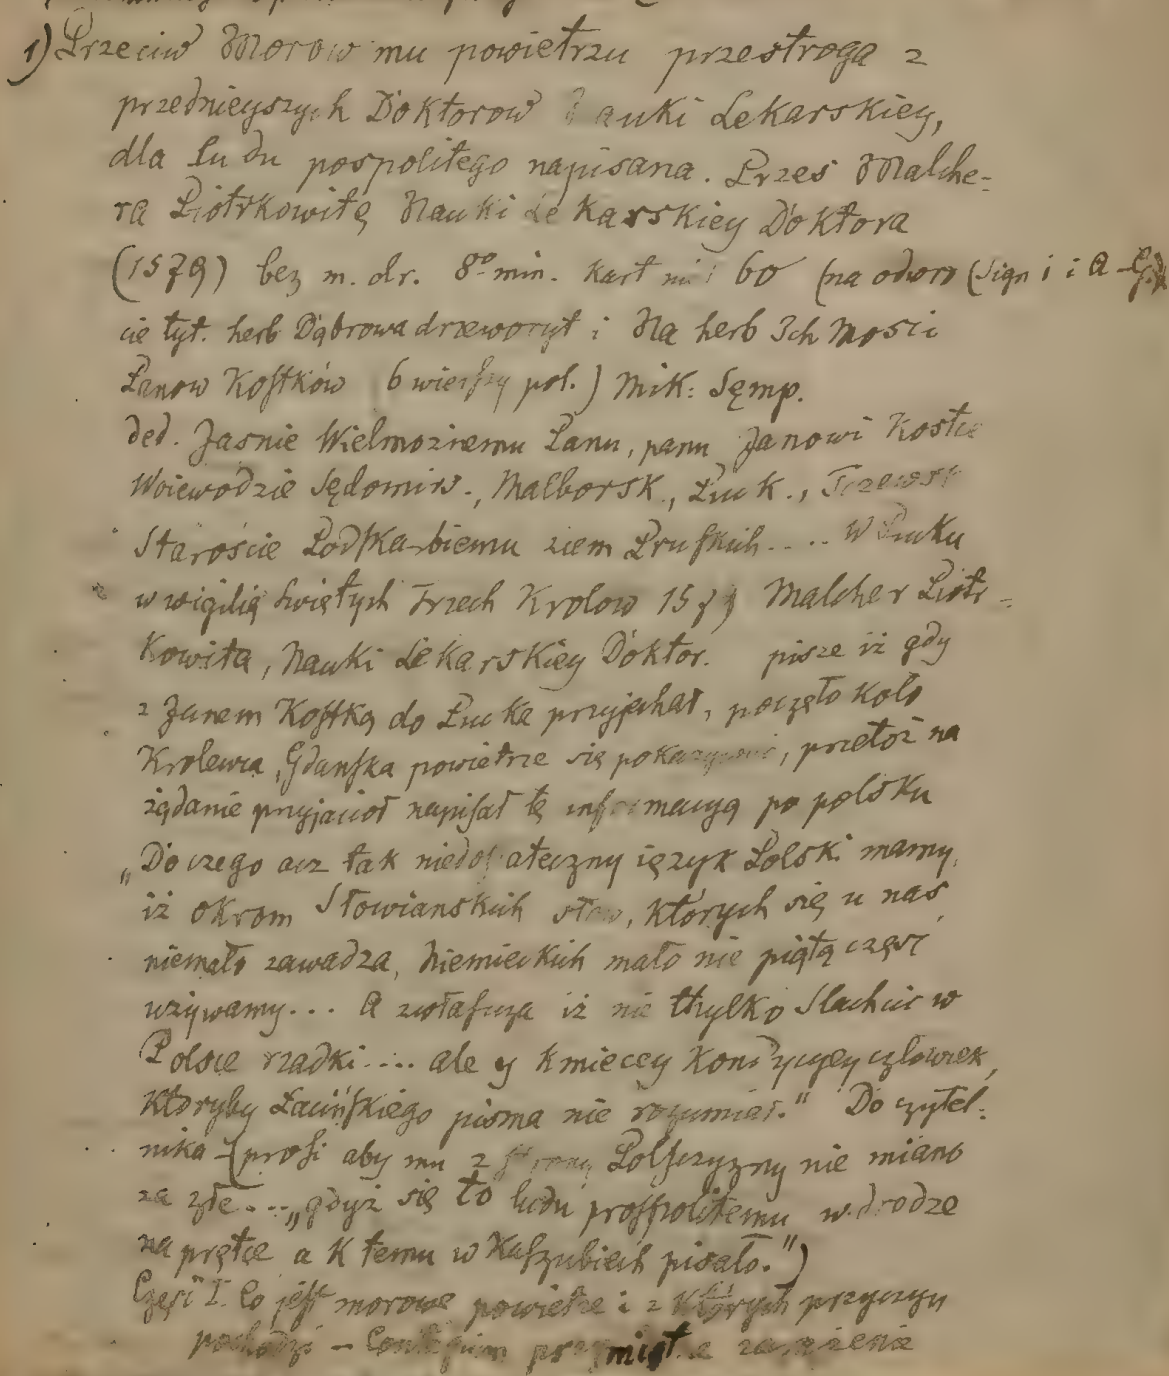 1) Przeciw Morow mu powietrzu przestroga z
przednieyszych Doktorow Nauki Lekarskiey,
dla ludu pospolitego napisana. Przes Malche-
ra Piotrkowitę Nauki Lekarskiey Doktora
(1579) bez m. dr. 8º min. kart 60 (na odwro (Sign i i A
cie tyt. herb Dąbrowa drzeworyt i Na herb Ich Mosci
Panow Kostków 6 wierszy pol.) Mik: Sęmp.
ded. Jasnie Wielmożnemu Panu, panu Janowi Kostce
Woiewodzie Sędomirs., Malborsk., Puck., Tczewsk
Staroście Podskarbiemu ziem Pruskich.... W Pucku
w wigilią świętych Trzech Krolow 1579 Malcher Piotr-
kowita, Nauki Lekarskiey Doktor. pisze iż gdy
z Janem Kostką do Pucka przyjechał, poczęło koło
Krolewca, Gdańska powietrze się pokazywać, przetoż na
żądanie przyjaciół napisał tę informacyą po polsku
„Do czego acz tak niedostateczny ięzyk Polski mamy,
iż okrom Słowianskich słow, których się u nas
niemało zawadza, Niemieckich mało nie piątą część
używamy... A zwłaszcza iż nie thylko Slachcic w
Polsce rzadki.... ale y kmiecey kondycyey człowiek,
ktoryby Łacińskiego pisma nie rozumiał." Do czytel-
nika - (prosi aby mu z strony Polszczyzny nie miano
za złe... „gdyż się to ludu prosspolitemu w drodze
na prętce a k temu w Kaszubiech pisało.")
Część I. Co jest morowe powietrze i z których przyczyn
pochodzi - Contagium przymiotne zarażenie